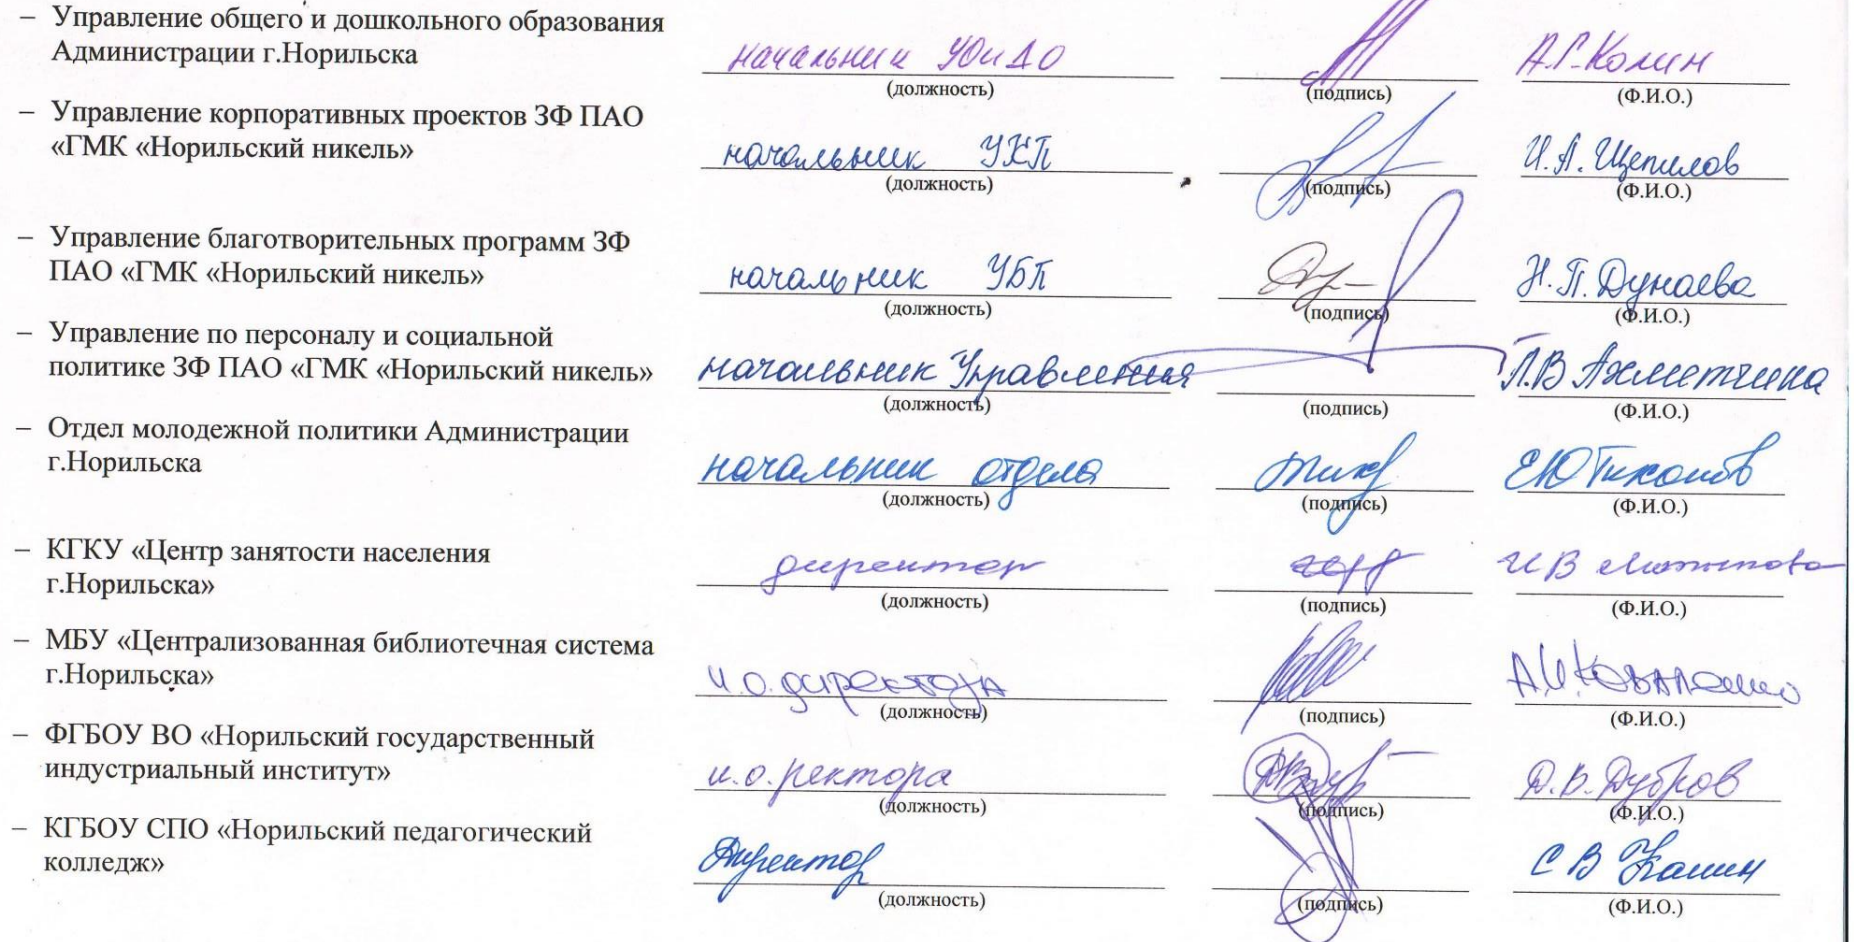 – Управление общего и дошкольного образования
Администрации г.Норильска
начальник УОиДО
А.Г.Колин
(должность)
(подпись)
(Ф.И.О.)
– Управление корпоративных проектов ЗФ ПАО
«ГМК «Норильский никель»
начальник УКП
И.А. Щепилов
(должность)
(подпись)
(Ф.И.О.)
– Управление благотворительных программ ЗФ
ПАО «ГМК «Норильский никель»
начальник УБП
Н.П. Дунаева
(должность)
(подпись)
(Ф.И.О.)
– Управление по персоналу и социальной
политике ЗФ ПАО «ГМК «Норильский никель»
начальник Управления
Л.В Ахметчина
(должность)
(подпись)
(Ф.И.О.)
– Отдел молодежной политики Администрации
г.Норильска
начальник отдела
Е Ю Тихонов
(должность)
(подпись)
(Ф.И.О.)
– КГКУ «Центр занятости населения
г.Норильска»
директор
И В
(должность)
(подпись)
(Ф.И.О.)
– МБУ «Централизованная библиотечная система
г.Норильска»
и.о. директора
А.И. Коваленко
(должность)
(подпись)
(Ф.И.О.)
– ФГБОУ ВО «Норильский государственный
индустриальный институт»
и.о. ректора
Д.В. Дубров
(должность)
(подпись)
(Ф.И.О.)
– КГБОУ СПО «Норильский педагогический
колледж»
Директор
С В
(должность)
(подпись)
(Ф.И.О.)